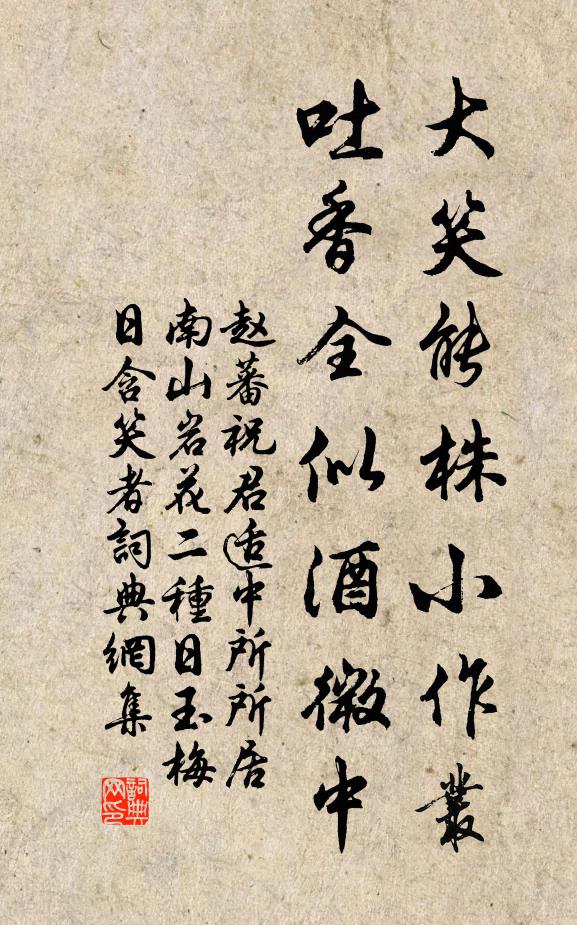 大笑能株小作叢
吐香全似酒微中
赵蕃祝君适中所所居
南山岩花二種日玉梅
日含笑者詞典網集
詞典
网印